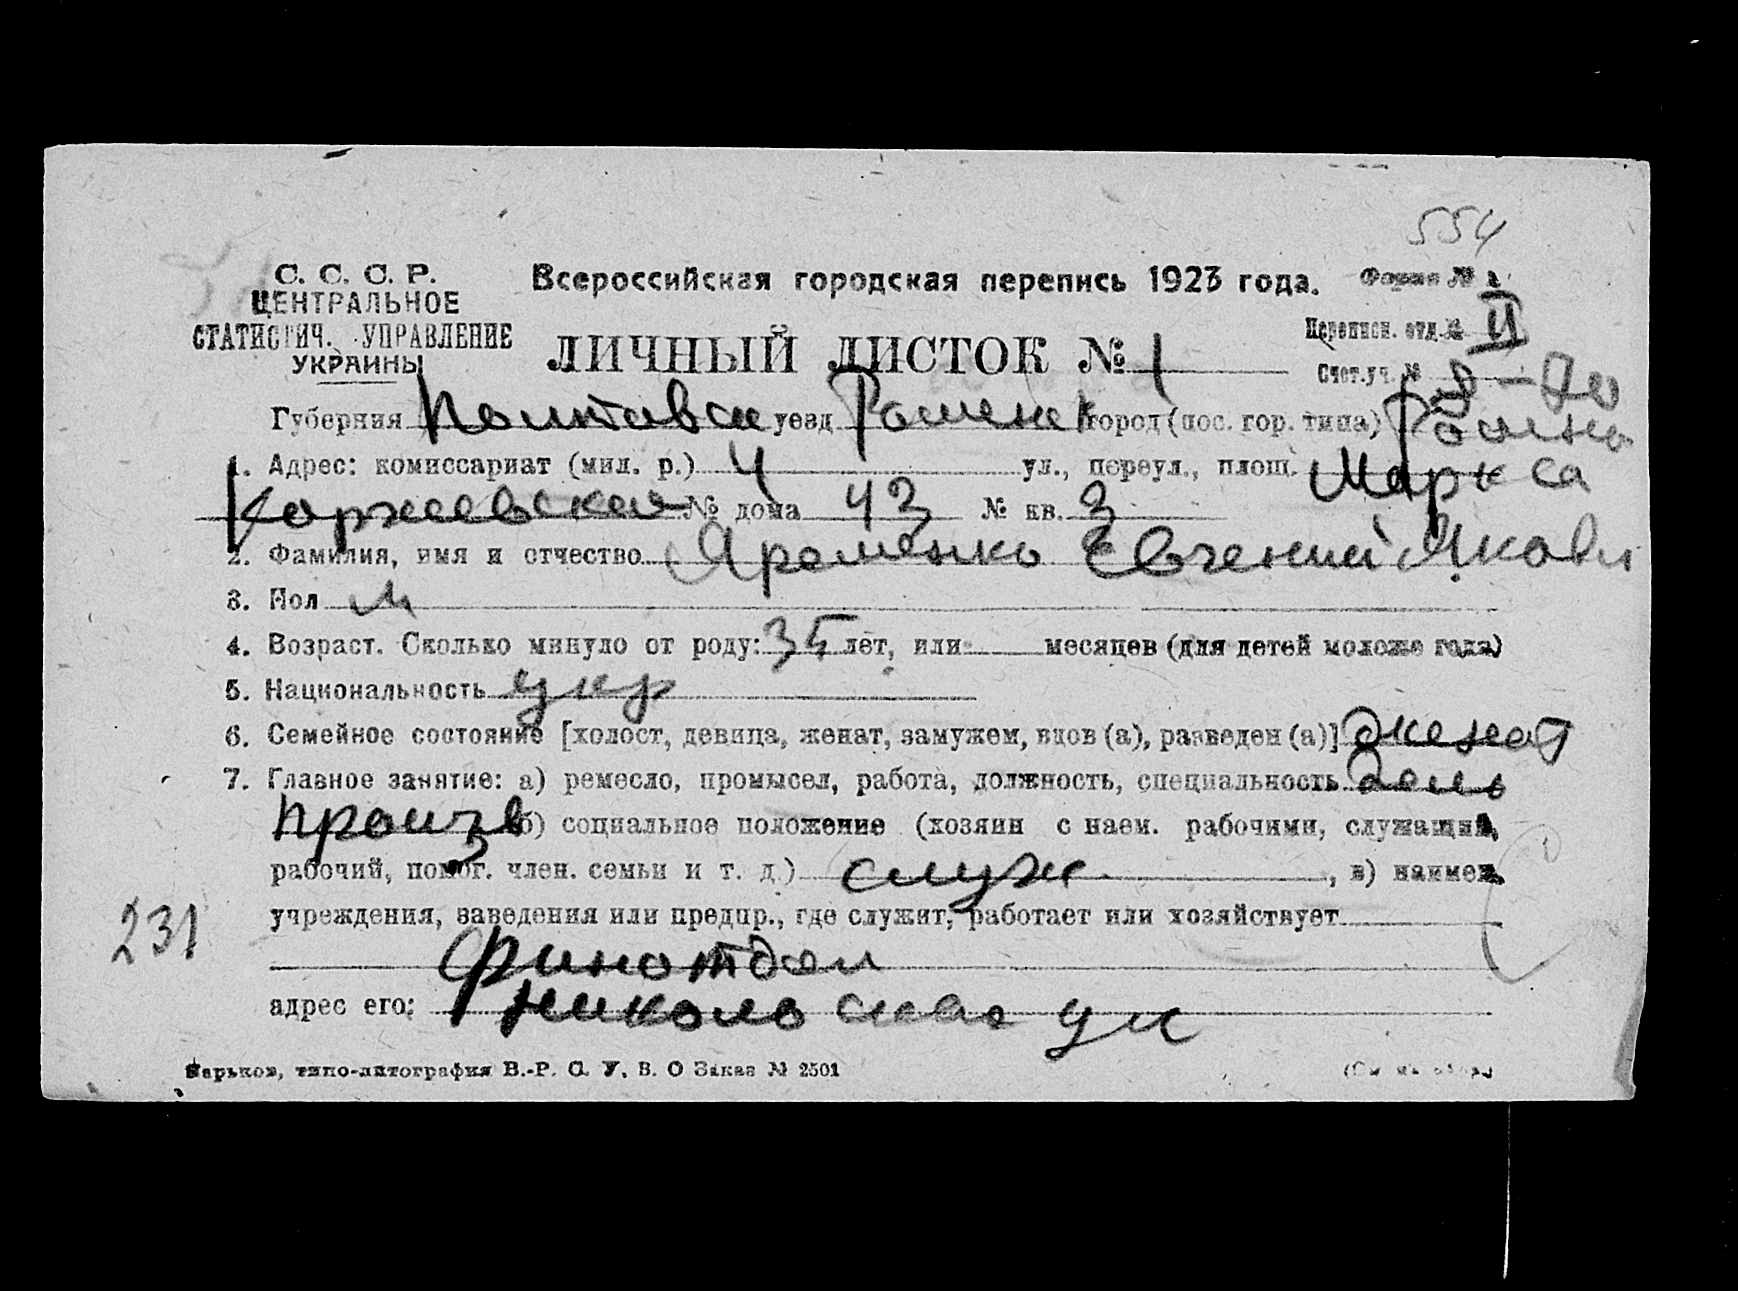 554
С. С. С. Р.
ЦЕНТРАЛЬНОЕ
СТАТИСТИЧ. УПРАВЛЕНИЕ
УКРАИНЫ
Всероссийская городская перепись 1923 года.
Форма №
Переписн. отд. № II
ЛИЧНЫЙ ЛИСТОК № 1
Счет. уч. №
Губерния Полтавск уезд Роменск город (пос. гор. типа) Ромны
1. Адрес: комиссариат (мил. р.) 4 ул., переул., площ. Маркса
Коржевская № дома 43 № кв. 3
2. Фамилия, имя и отчество Яроменко Евгений Яковл
3. Пол м
4. Возраст. Сколько минуло от роду: 35 лет, или месяцев (для детей моложе года)
5. Национальность укр
6. Семейное состояние [холост, девица, женат, замужем, вдов (а), разведен (а)] женат
7. Главное занятие: а) ремесло, промысел, работа, должность, специальность дело
произв б) социальное положение (хозяин с наем. рабочими, служащий,
рабочий, помог. член. семьи и т. д.) служ. , в) наимен.
учреждения, заведения или предпр., где служит, работает или хозяйствует
231
Финотдел
адрес его: Никольская ул
Харьков, типо-литография В.-Р. С. У. В. О Заказ № 2501